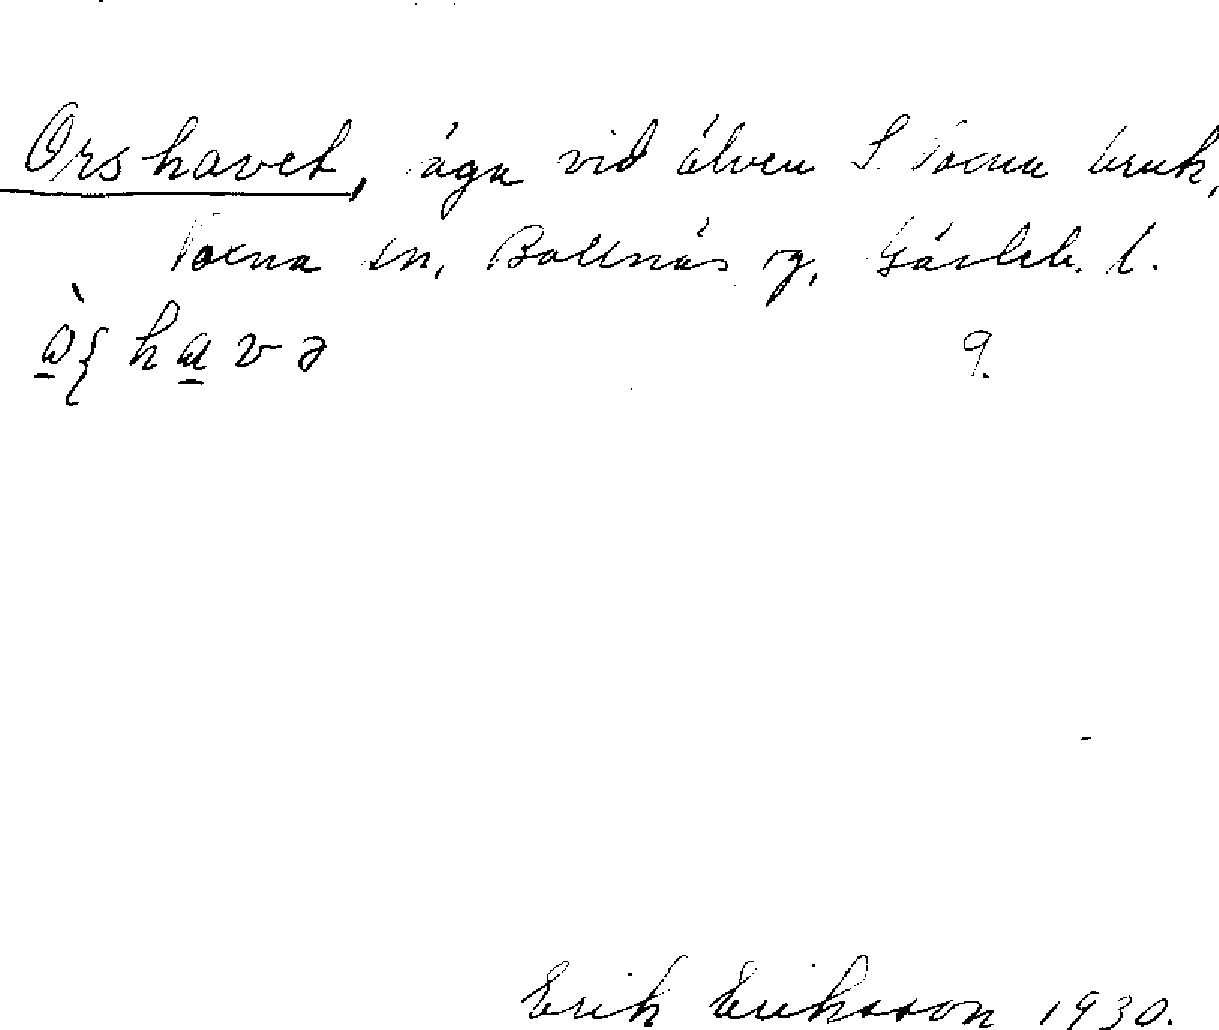 Orshavet, äga vid älven S Voxna bruk,
Voxna sn, Bollnäs fg, Gävleb. l.
hava
9.
Erik Eriksson 1930.